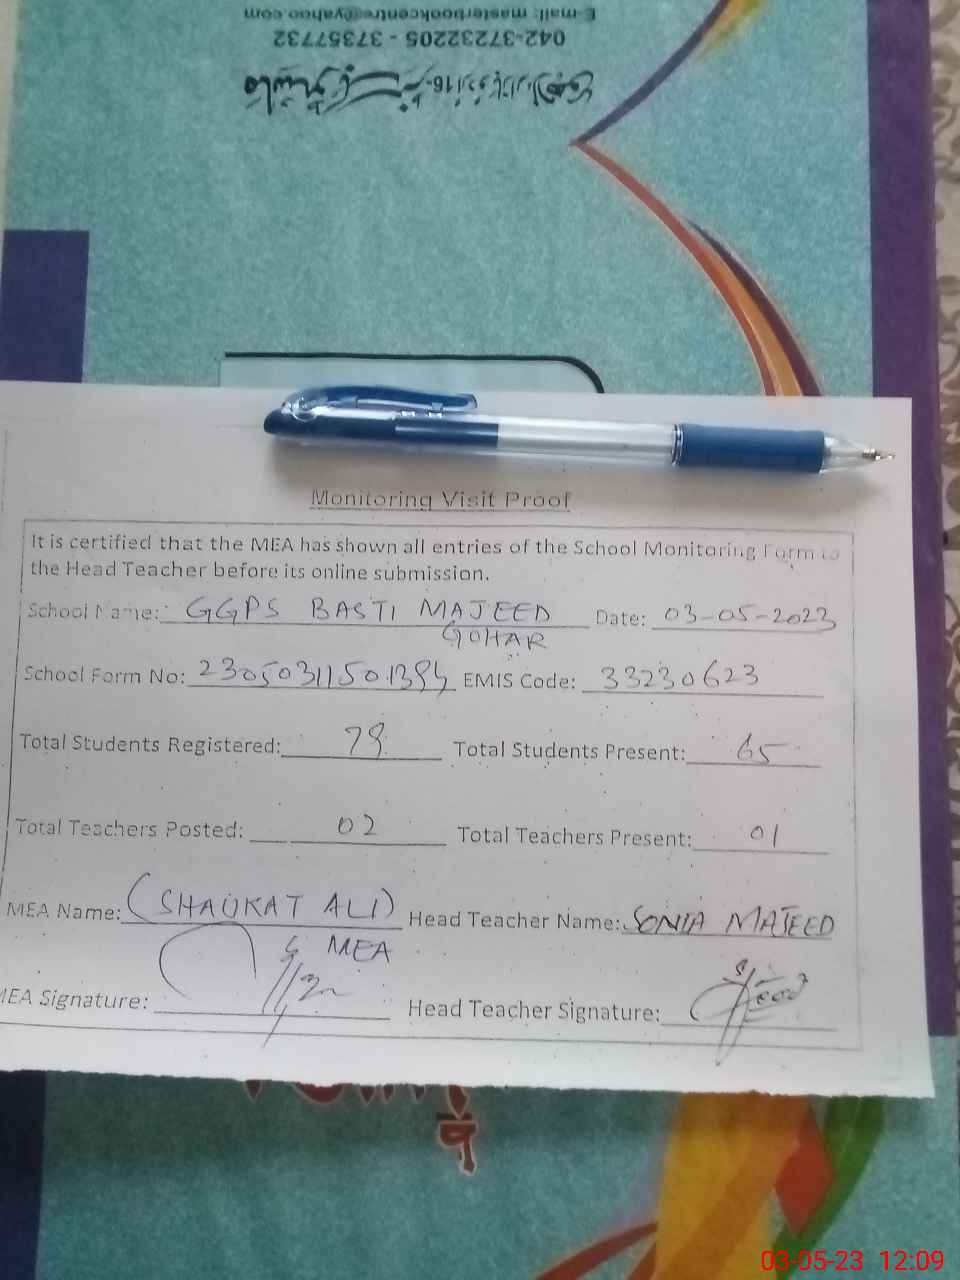 E-mail: masterbookcentre@yahoo.com
042-37232205 - 37357732
Monitoring Visit Proof
It is certified that the MEA has shown all entries of the School Monitoring Form to
the Head Teacher before its online submission.
School Name: GGPS BASTI MAJEED GOHAR Date: 03-05-2023
School Form No: EMIS Code: 33230623
Total Students Registered: 79 Total Students Present: 65
Total Teachers Posted: 02 Total Teachers Present: 01
MEA Name: (SHAUKAT ALI) Head Teacher Name: SONIA MAJEED
MEA
MEA Signature: Head Teacher Signature:
03-05-23 12:09